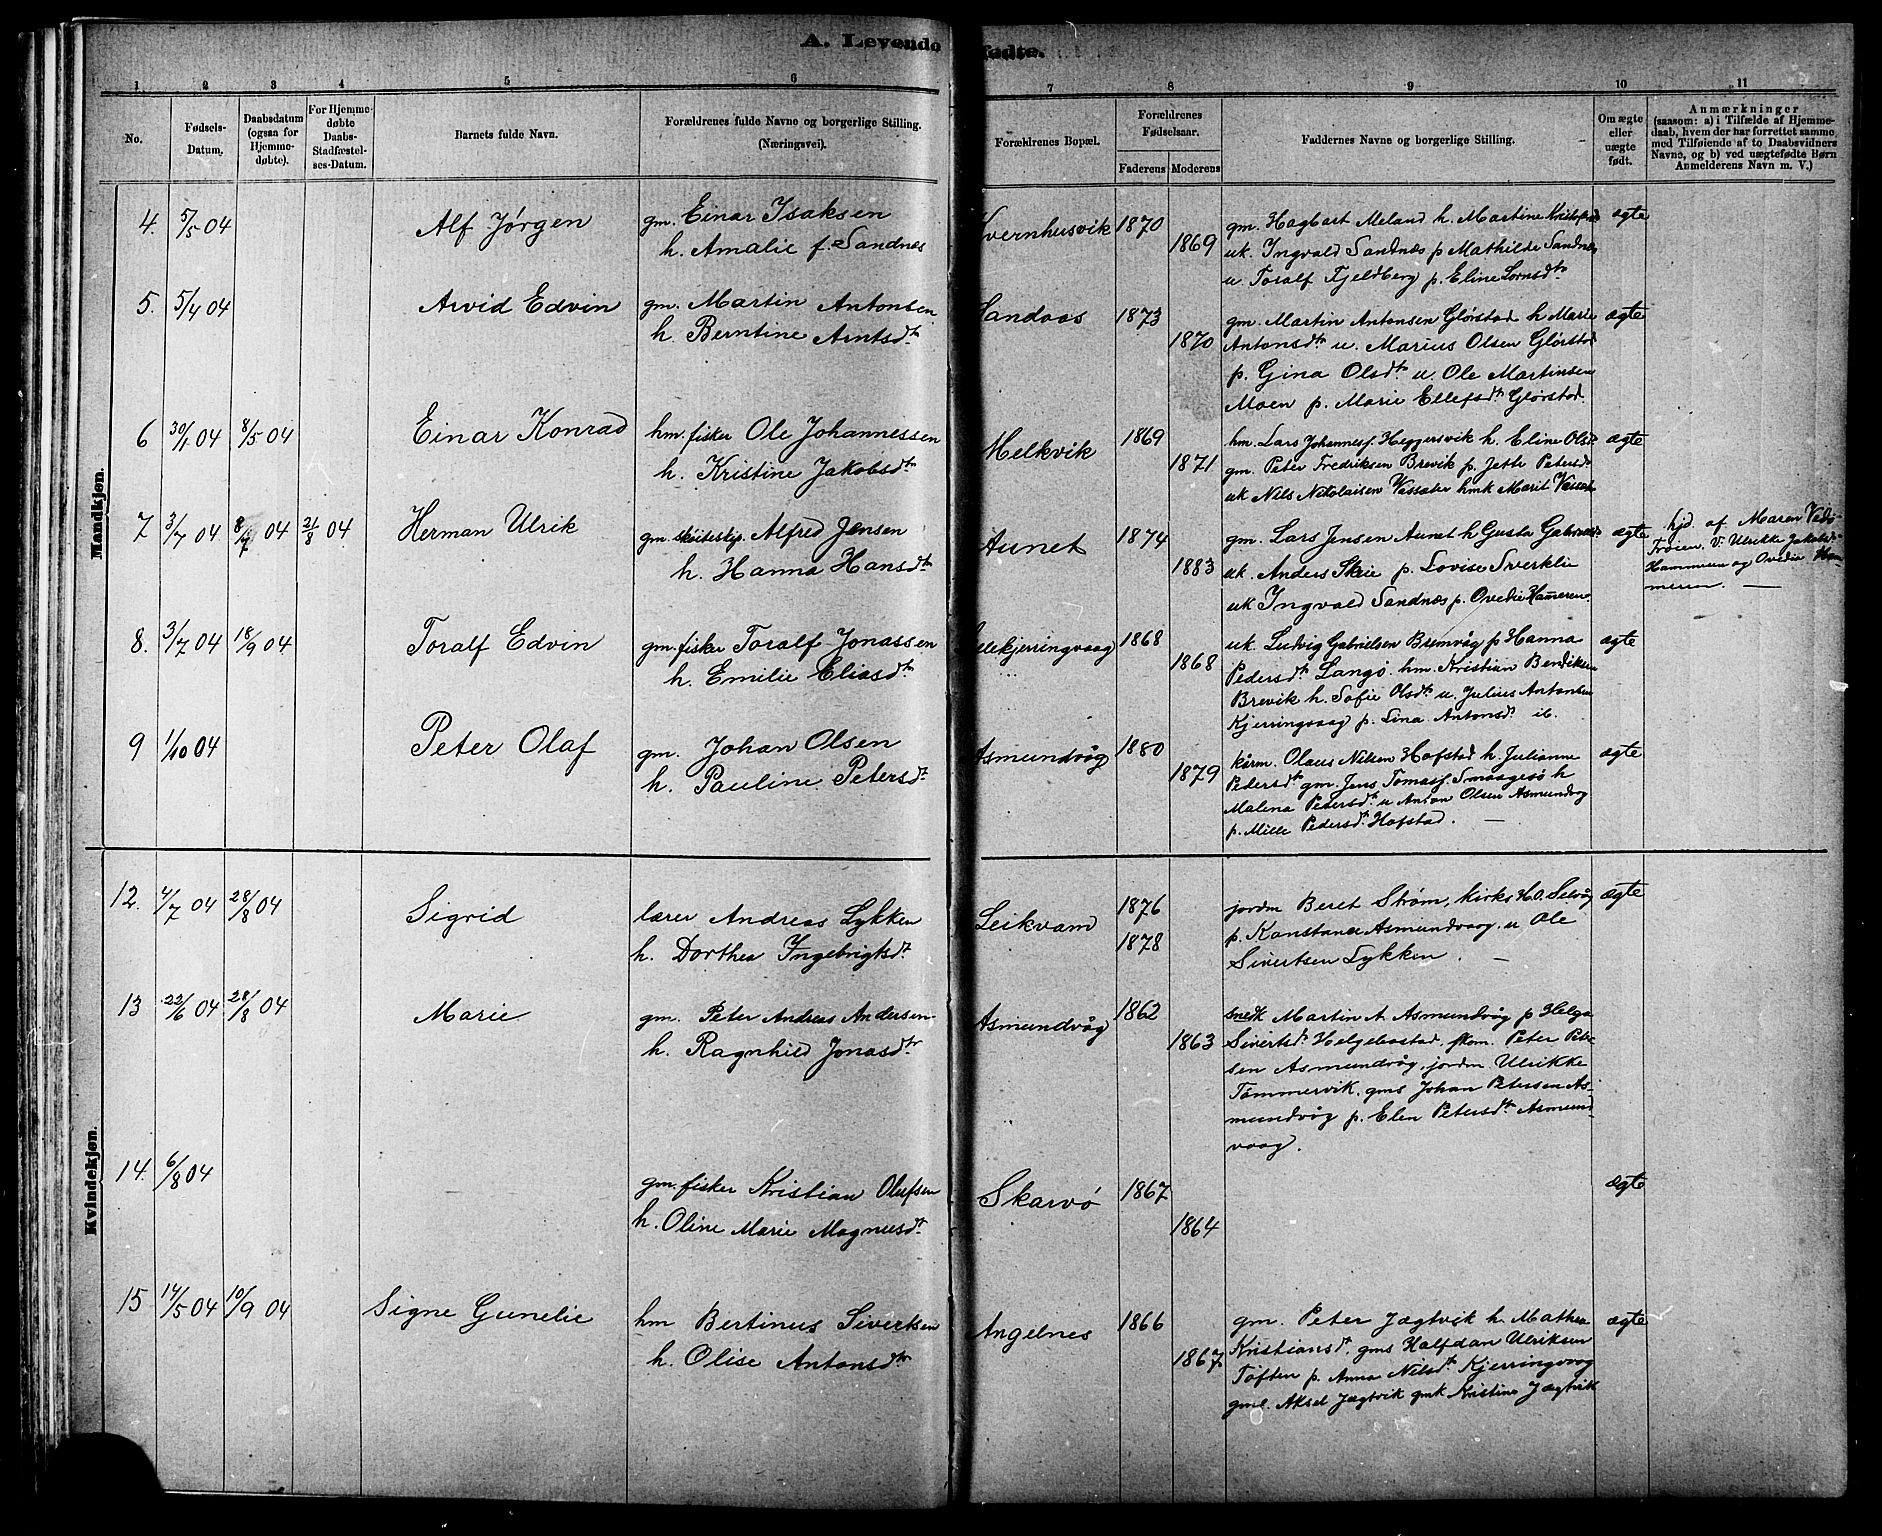 A. Levende fødte.
1 2 3 4 5 6 7 8 9 10 11
No.
Fødsels-
Datum.
Daabsdatum
(ogsaa for
Hjemme-
døbte).
For Hjemme-
døbte
Daabs-
Stadfæstel-
ses-Datum.
Barnets fulde Navn.
Forældrenes fulde Navne og borgerlige Stilling.
(Næringsvei).
Forældrenes Bopæl.
Forældrenes
Fødselsaar.
Faderens Moderens
Faddernes Navne og borgerlige Stilling.
Om ægte
eller
uægte
født.
Anmærkninger
(saasom: a) i Tilfælde af Hjemme-
daab, hvem der har forrettet samme,
med Tilføiende af to Daabsvidners
Navne, og b) ved uægtefødte Børn
Anmelderens Navn m. V.)
Mandkjøn.
4. 5/5 04 Alf Jørgen
gm. Einar Isaksen
h. Amalie f. Sandnæs
vernhusvik 1870 1869
gm. Hagbart Meland h. Martine
uk. Ingvald Sandnæs p Mathilde Sandnæs
u. Toralf Fjeldberg p. Eline Lornsdtr
ægte
5. 5/4 04 Arvid Edvin
gm. Martin Antonsen
h. Berntine Arntsdtr
Sandaas 1873 1870
gm. Martin Antonsen Glørstad h Marie
Antonsdtr u. Marius Olsen Glørstad
p. Gina Olsdtr u. Ole Martinsen
Moen p. Marie Ellefsdtr Glørstad.
ægte
6 30/1 04 8/5 04 Einar Konrad
hm. fisker Ole Johannessen
h. Kristine Jakobsdtr
Melkvik 1869 1871
hm. Lars Johannesf. Heggersvik h. Eline Olsd
gm. Peter Fredriksen Brevik p. Jette Petersd
uk Nils Nikolaisen Vassæter hmk Marit
ægte
7 3/7 04 8/7 04 21/8 04 Herman Ulrik
gm. Alfred Jensen
h. Hanna Hansdtr
Aunet 1874 1883
gm. Lars Jensen Aunet h Gusta
uk. Anders Skrie p. Lovise Sverklie
uk Ingvald Sandnæs p. Ovedie Hameren.
ægte
hjd. af Maren
Trøien. V. Ulrikke Jakobsd
Hammeren og Ovedie Ham-
meren. —
8. 3/7 04 18/9 04 Toralf Edvin
gm. fisker Toralf Jonassen
h. Emilie Eliasdtr
kjerringvaag 1868 1868
uk. Ludvig Gabrielsen Bremvåg p Hanna
Pedersdtr Langø. hm. Kristian Bendiksen
Brevik h. Sofie Olsdtr u. Julius Antonsen
Kjerringvaag p. Lina Antonsdt. ib.
ægte
9 1/10 04 Peter Olaf
gm. Johan Olsen
h. Pauline Petersdtr
Asmundvåg 1880 1879
kårm. Olaus Nilsen Hofstad h. Julianne
Pedersdtr gm. Jens Tomasf. Smaagesø h
Malena Petersdtr u Anton Olsen Asmundvog
p. Mille Pedersdtr. Hofstad. —
ægte
Kvindekjøn.
12. 4/7 04 28/8 04 Sigrid
lærer Andreas Lykken
h. Dorthea Ingebrigtsdtr
Leikvam 1876 1878
jordm Beret Strøm, kirks H.O. Selvåg
p. Konstance Asmundvaag. u Ole
Sivertsen Lykken. —
ægte
13 22/6 04 28/8 04 Marie
gm. Peter Andreas Andersen
h. Ragnhild Jonasdtr
Asmundvåg 1862 1863
snedk Martin A. Asmundvåg p Helga
Sivertsdt. Helgebostad, Peter Peter-
sen Asmundvåg, jordm Ulrikke
Tømmervik. gms Johan Petersen As-
mundvåg p. Elen Petersdt. Asmund-
vaag.
14. 6/8 04
gm. fisker Kristian Olufsen
h. Oline Marie Magnusdtr
Skarvø 1867 1864
ægte
15 14/5 04 10/9 04 Signe Gunelie
hm Bertinus Sivertsen
h. Olise Antonsdtr
Angelnes 1866 1867
gm. Peter Jægtvik h. Mathea
Kristiansdt. gms Halfdan Ulriksen
Tøften p. Anna Nilsdtr Kjerringvaag
gml. Aksel Jægtvik gmk Kristine Jægtvik
ægte